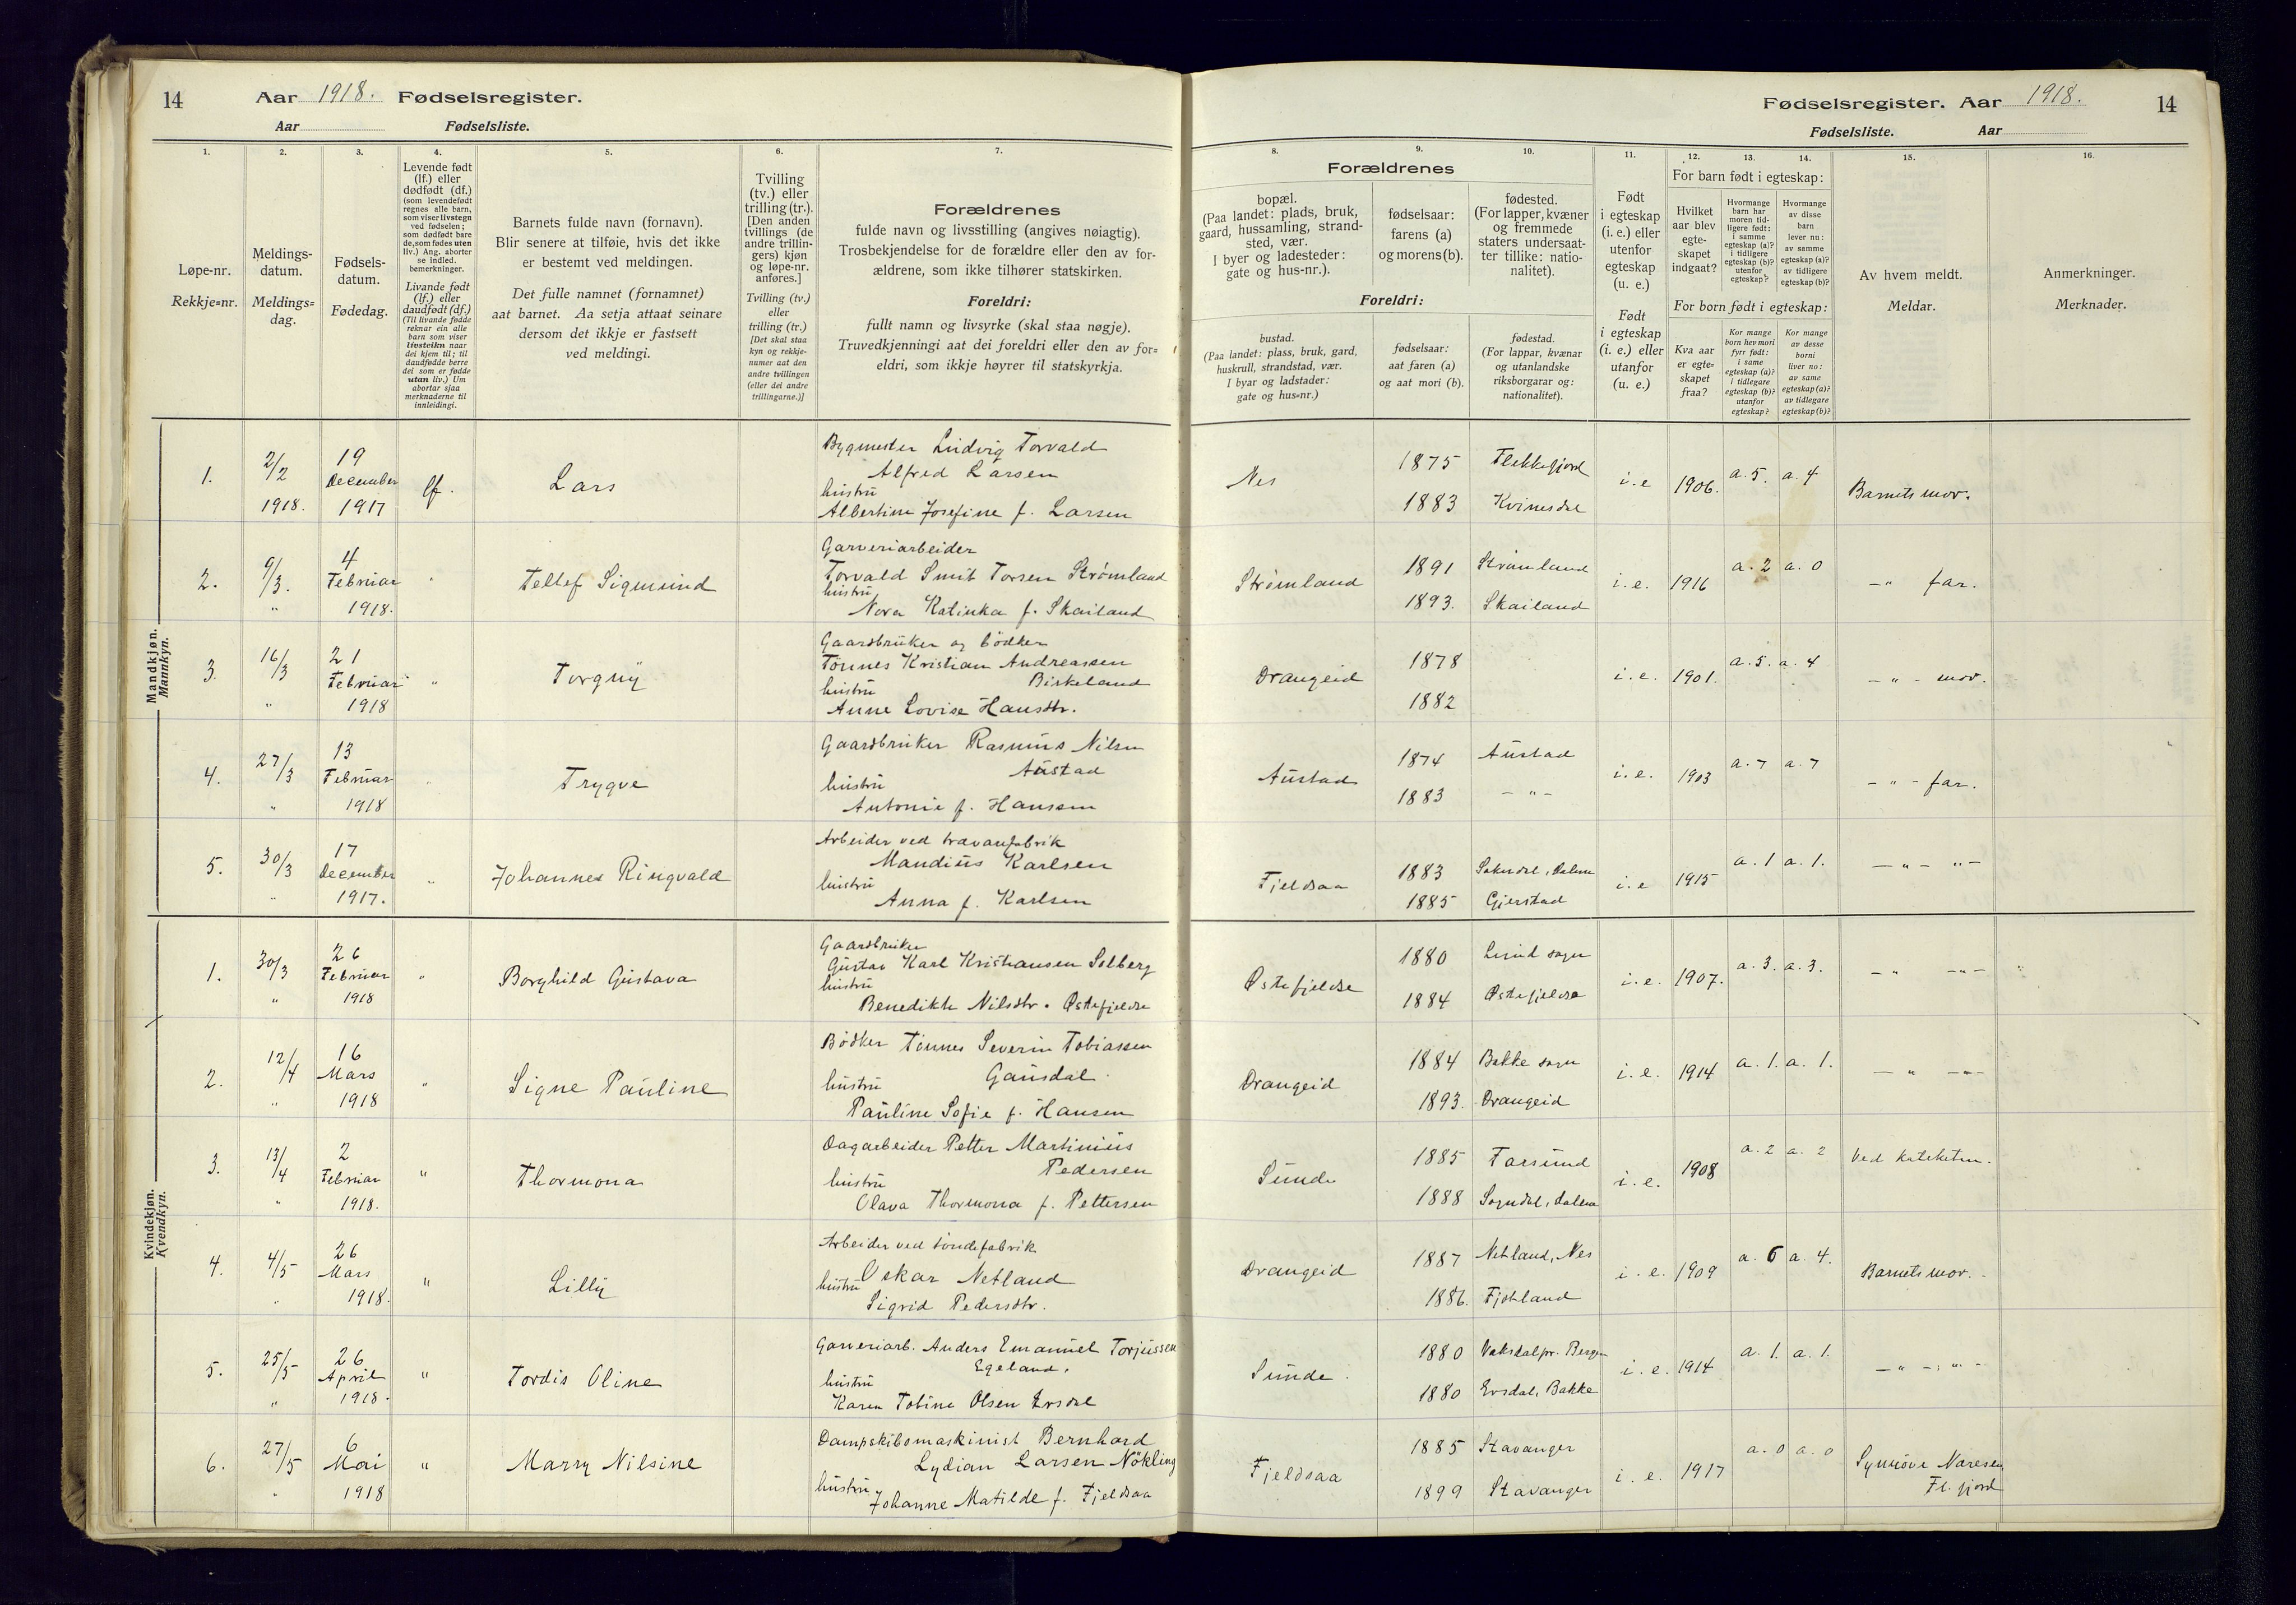 14
Aar 1918. Fødselsregister.
Aar Fødselsliste.
Fødselsregister. Aar 1918.
14
Fødselsliste. Aar
1. 2. 3. 4. 5. 6. 7.
Løpe-nr.
Rekkje=nr.
Meldings-
datum.
Meldings=
dag.
Fødsels-
datum.
Fødedag.
Levende født
(lf.) eller
dødfødt (df.)
(som levendefødt
regnes alle barn,
som viser livstegn
ved fødselen;
som dødfødt bare
de, som fødes uten
liv.) Ang. aborter
se indled.
bemerkninger.
Livande født
(lf.) eller
daudfødt (df.)
(Til livande fødde
reknar ein alle
barn som viser
livsteikn naar
dei kjem til; til
daudfødde berre
dei som er fødde
utan liv.) Um
abortar sjaa
merknaderne til
innleidingi.
Barnets fulde navn (fornavn).
Blir senere at tilføie, hvis det ikke
er bestemt ved meldingen.
Det fulle namnet (fornamnet)
aat barnet. Aa setja attaat seinare
dersom det ikkje er fastsett
ved meldingi.
Tvilling
(tv.) eller
trilling (tr.).
[Den anden
tvillings (de
andre trillin-
gers) kjøn
og løpe-nr.
anføres.]
Tvilling (tv.)
eller
trilling (tr.)
[Det skal staa
kyn og rekkje-
numer aat den
andre tvillingen
(eller dei andre
trillingarne.)]
Forældrenes
fulde navn og livsstilling (angives nøiagtig).
Trosbekjendelse for de forældre eller den av for-
ældrene, som ikke tilhører statskirken.
Foreldri:
fullt namn og livsyrke (skal staa nøgje).
Truvedkjenningi aat dei foreldri eller den av for=
eldri, som ikkje høyrer til statskyrkja.
8. 9. 10. 11. 12. 13. 14. 15. 16.
Forældrenes
bopæl.
(Paa landet: plads, bruk,
gaard, hussamling, strand-
sted, vær.
I byer og ladesteder:
gate og hus-nr.).
fødselsaar:
farens (a)
og morens (b).
fødested.
(For lapper, kvæner
og fremmede
staters undersaat-
ter tillike: natio-
nalitet).
Foreldri:
bustad.
(Paa landet: plass, bruk, gard,
huskrull, strandstad, vær.
I byar og ladstader:
gate og hus=nr.)
fødselsaar:
aat faren (a)
og aat mori (b).
fødestad.
(For lappar, kvænar
og utanlandske
riksborgarar og:
nationalitet).
Født
i egteskap
(i. e.) eller
utenfor
egteskap
(u. e.)
Født
i egteskap
(i. e.) eller
utanfor
(u. e.)
For barn født i egteskap:
Hvilket
aar blev
egte-
skapet
indgaat?
Hvormange
barn har
moren tid-
ligere født:
i samme
egteskap (a)?
i tidligere
egteskap (b)?
utenfor
egteskap?
Hvormange
av disse
barn
lever nu:
av samme
egteskap (a)?
av tidligere
egteskap (b)?
For born født i egteskap:
Kva aar
er egte-
skapet
fraa?
Kor mange
born hev mori
fyrr født:
i same
egteskap (a)?
i tidlegare
egteskap (b)?
utanfor
egteskap?
Kor mange
av desse
borni
liver no:
av same
egteskap (a)?
av tidlegare
egteskap (b)?
Av hvem meldt.
Meldar.
Anmerkninger.
Merknader.
Mandkjøn.
Mannkyn.
1. 2/2 1918. 19 December 1917 lf. Lars
Bygmester Ludvig Torvald
Alfred Larsen
hustru
Albertine Josefine f. Larsen
Nes 1875 Flekkefjord i. e 1906. a. 5. a. 4 Barnets mor.
1883 Kvinesdal
2. 9/3. " 4 Februar 1918. " Tellef Sigmund
Garveriarbeider
Torvald Smit Torsen Strømland
hustru
Nora Katinka f. Skailand
Strømland 1891 Strømland i. e. 1916 a. 2 a. 0 — " far.
1893. Skailand
3. 16/3 " 21 Februar 1918 " Torguy
Gaardbruker og bödker
Tönnes Kristian Andreassen
Birkeland
hustru
Anne Lovise Hansdtr.
Drangeid 1878 i. e. 1901. a. 5. a. 4 — " — mor.
1882
4. 27/3 " 13 Februar 1918 " Trygve
Gaardbruker Rasmus Nilsen
Austad
hustru
Antonie f. Hansen
Austad 1874 Austad i. e. 1903 a. 7 a. 7 — " — far.
1883 — " —
5. 30/3 " 17 December 1917. " Johannes Ringvald
Arbeider ved trævarefabrik
Mandius Karlsen
hustru
Anna f. Karlsen
Fjeldsaa 1883 Sokndal, Dalene i. e 1915 a. 1 a. 1. — " — " —
1885 Gjerstad
Kvindekjøn.
Kvendkyn.
1. 30/3 " 26 Februar 1918 " Borghild Gustava
Gaardbruker
Gustav Karl Kristiansen Solberg
hustru
Benedikte Nilsdtr. Østefjeldse
Østefjeldse 1880 Lund sogn i. e. 1907. a. 3. a. 3. — " — " —
1884 Østefjeldse
2. 12/4 " 16 Mars 1918 " Signe Pauline
Bödker Tönnes Severin Tobiassen
Gausdal.
hustru
Pauline Sofie f. Hansen
Drangeid 1884 Bakke sogn i. e. 1914 a. 1. a. 1. — " — " —
1893. Drangeid
3. 13/4 " 2 Februar 1918. " Thormona
Dagarbeider Petter Martinius
Pedersen
hustru
Olava Thormona f. Pettersen
Sunde 1885 Farsund i. e. 1908 a. 2 a. 2 Ved kateketen.
1888 Sogndal, Dalene
4. 4/5 " 26 Mars 1918. " Lilly
Arbeider ved tøndefabrik
Oskar Netland
hustru
Sigrid Pedersdtr.
Drangeid 1887 Netland, Nes i. e. 1909 a. 6 a. 4. Barnets mor.
1886. Fjotland
5. 25/5 " 26 April 1918. " Tordis Oline
Garveriarb. Anders Emanuel Torjussen
Egeland.
hustru
Karen Tobine Olsen Ersdal
Sunde. 1880 Vaksdal pr. Bergen i. e. 1914 a. 1. a. 1. — " — " —
1880 Ersdal, Bakke
6. 27/5 " 6 Mai 1918 " Marry Nilsine
Dampskibsmaskinist Bernhard
Lydian Larsen Nökling
hustru
Johanne Matilde f. Fjeldsaa
Fjeldsaa 1885 Stavanger i. e. 1917 a. 0 a. 0 Synnöve Naresen
1899 Stavanger Fl. fjord